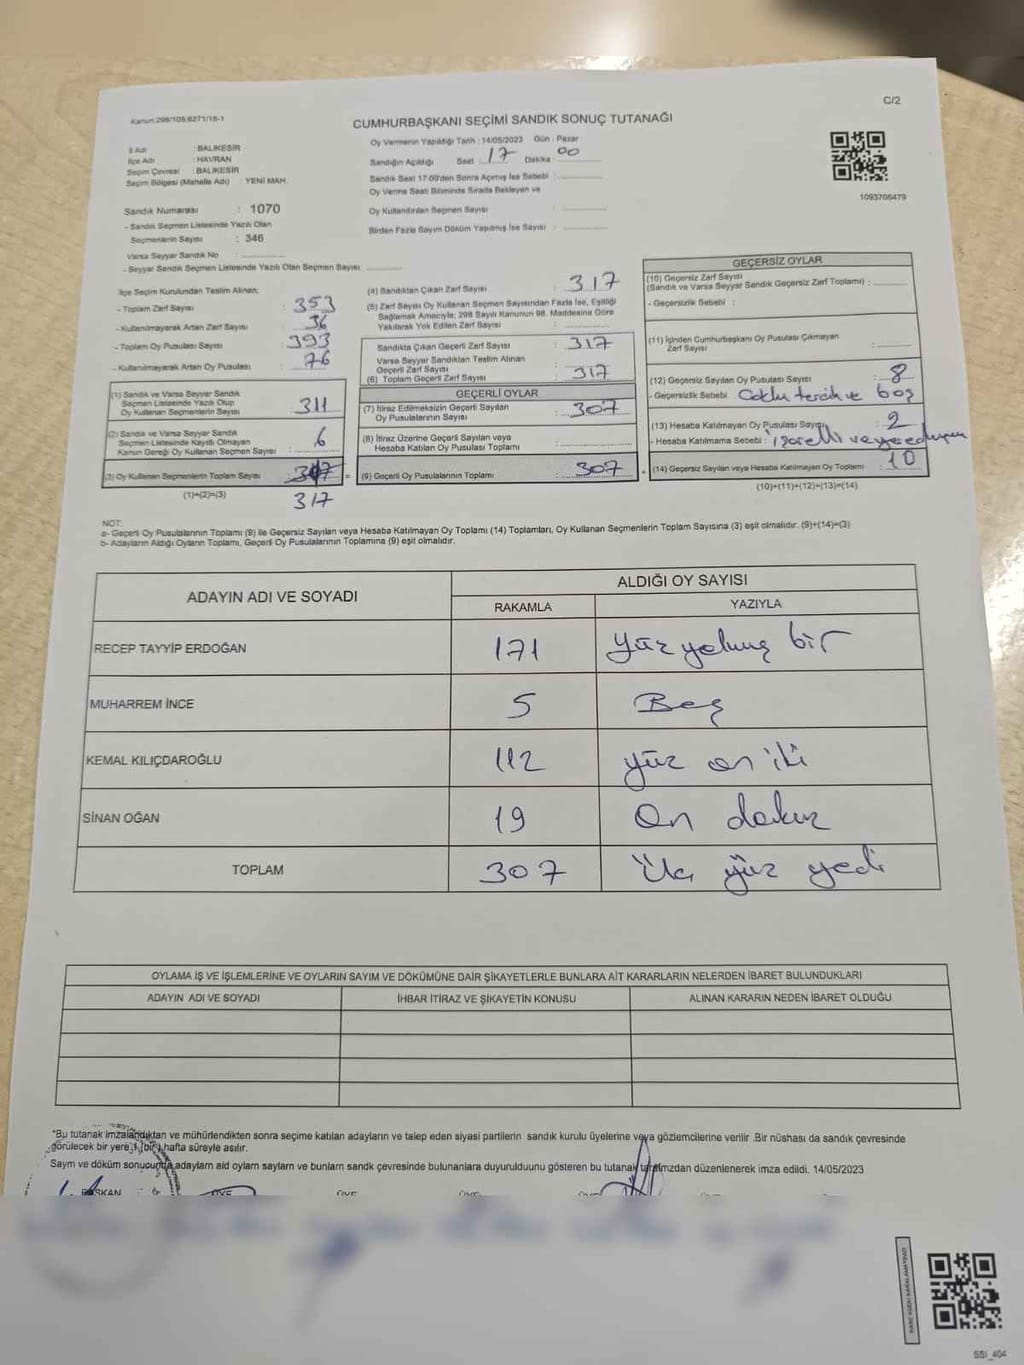 Kanun:298/105,6271/18-1
C/2
CUMHURBAŞKANI SEÇİMİ SANDIK SONUÇ TUTANAĞI
İl Adı : BALIKESİR
İlçe Adı : HAVRAN
Seçim Çevresi : BALIKESİR
Seçim Bölgesi (Mahalle Adı) YENİ MAH.
Sandık Numarası : 1070
- Sandık Seçmen Listesinde Yazılı Olan
Seçmenlerin Sayısı : 346
Varsa Seyyar Sandık No :
- Seyyar Sandık Seçmen Listesinde Yazılı Olan Seçmen Sayısı
Oy Vermenin Yapıldığı Tarih : 14/05/2023 Gün : Pazar
Sandığın Açıldığı Saat : 17 Dakika : 00
Sandık Saat 17:00'den Sonra Açılmış İse Sebebi :
Oy Verme Saati Bitiminde Sırada Bekleyen ve
Oy Kullandırılan Seçmen Sayısı :
Birden Fazla Sayım Döküm Yapılmış İse Sayısı :
1093706479
İlçe Seçim Kurulundan Teslim Alınan;
- Toplam Zarf Sayısı : 353
- Kullanılmayarak Artan Zarf Sayısı : 36
- Toplam Oy Pusulası Sayısı : 393
- Kullanılmayarak Artan Oy Pusulası : 76
(1) Sandık ve Varsa Seyyar Sandık
Seçmen Listesinde Yazılı Olup
Oy Kullanan Seçmenlerin Sayısı : 311
(2) Sandık ve Varsa Seyyar Sandık
Seçmen Listesinde Kayıtlı Olmayan
Kanun Gereği Oy Kullanan Seçmen Sayısı : 6
(3) Oy Kullanan Seçmenlerin Toplam Sayısı : 317
(1)+(2)=(3) 317
(4) Sandıktan Çıkan Zarf Sayısı : 317
(5) Zarf Sayısı Oy Kullanan Seçmen Sayısından Fazla İse, Eşitliği
Sağlamak Amacıyla; 298 Sayılı Kanunun 98. Maddesine Göre
Yakılarak Yok Edilen Zarf Sayısı :
Sandıkta Çıkan Geçerli Zarf Sayısı : 317
Varsa Seyyar Sandıktan Teslim Alınan
Geçerli Zarf Sayısı :
(6) Toplam Geçerli Zarf Sayısı : 317
GEÇERLİ OYLAR
(7) İtiraz Edilmeksizin Geçerli Sayılan
Oy Pusulasının Sayısı : 307
(8) İtiraz Üzerine Geçerli Sayılan veya
Hesaba Katılan Oy Pusulası Toplamı :
(9) Geçerli Oy Pusulalarının Toplamı : 307
GEÇERSİZ OYLAR
(10) Geçersiz Zarf Sayısı
(Sandık ve Varsa Seyyar Sandık Geçersiz Zarf Toplamı) :
- Geçersizlik Sebebi :
(11) İçinden Cumhurbaşkanı Oy Pusulası Çıkmayan
Zarf Sayısı :
(12) Geçersiz Sayılan Oy Pusulası Sayısı : 8
- Geçersizlik Sebebi : Çoklu tercih ve boş
(13) Hesaba Katılmayan Oy Pusulası Sayısı : 2
- Hesaba Katılmama Sebebi : işaretli ve yere düşen
(14) Geçersiz Sayılan veya Hesaba Katılmayan Oy Toplamı : 10
(10)+(11)+(12)+(13)=(14)
NOT:
a- Geçerli Oy Pusulalarının Toplamı (9) ile Geçersiz Sayılan veya Hesaba Katılmayan Oy Toplamı (14) Toplamları, Oy Kullanan Seçmenlerin Toplam Sayısına (3) eşit olmalıdır. (9)+(14)=(3)
b- Adayların Aldığı Oyların Toplamı, Geçerli Oy Pusulalarının Toplamına (9) eşit olmalıdır.
ADAYIN ADI VE SOYADI
ALDIĞI OY SAYISI
RAKAMLA YAZIYLA
RECEP TAYYİP ERDOĞAN 171 Yüz yetmiş bir
MUHARREM İNCE 5 Beş
KEMAL KILIÇDAROĞLU 112 yüz on iki
SİNAN OĞAN 19 On dokuz
TOPLAM 307 Üç yüz yedi
OYLAMA İŞ VE İŞLEMLERİNE VE OYLARIN SAYIM VE DÖKÜMÜNE DAİR ŞİKAYETLERLE BUNLARA AİT KARARLARIN NELERDEN İBARET BULUNDUKLARI
ADAYIN ADI VE SOYADI İHBAR İTİRAZ VE ŞİKAYETİN KONUSU ALINAN KARARIN NEDEN İBARET OLDUĞU
*Bu tutanak imzalandıktan ve mühürlendikten sonra seçime katılan adayların ve talep eden siyasi partilerin sandık kurulu üyelerine veya gözlemcilerine verilir .Bir nüshası da sandık çevresinde
görülecek bir yere 1 (bir) hafta süreyle asılır.
Sayım ve döküm sonucunda adayların ald oylam sayları ve bunlarn sandk çevresinde bulunanlara duyurulduunu gösteren bu tutanak tarafımzdan düzenlenerek imza edildi. 14/05/2023
BAŞKAN ÜYE ÜYE ÜYE ÜYE
SSI_404